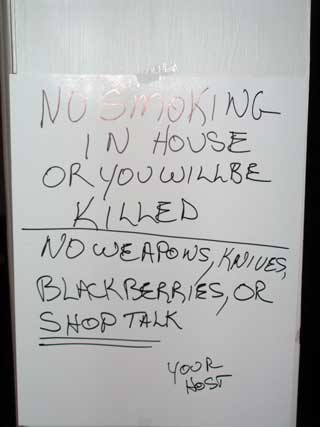 NO SMOKING
IN HOUSE
OR YOU WILL BE
KILLED
NO WEAPONS, KNIVES,
BLACKBERRIES, OR
SHOP TALK
YOUR
HOST